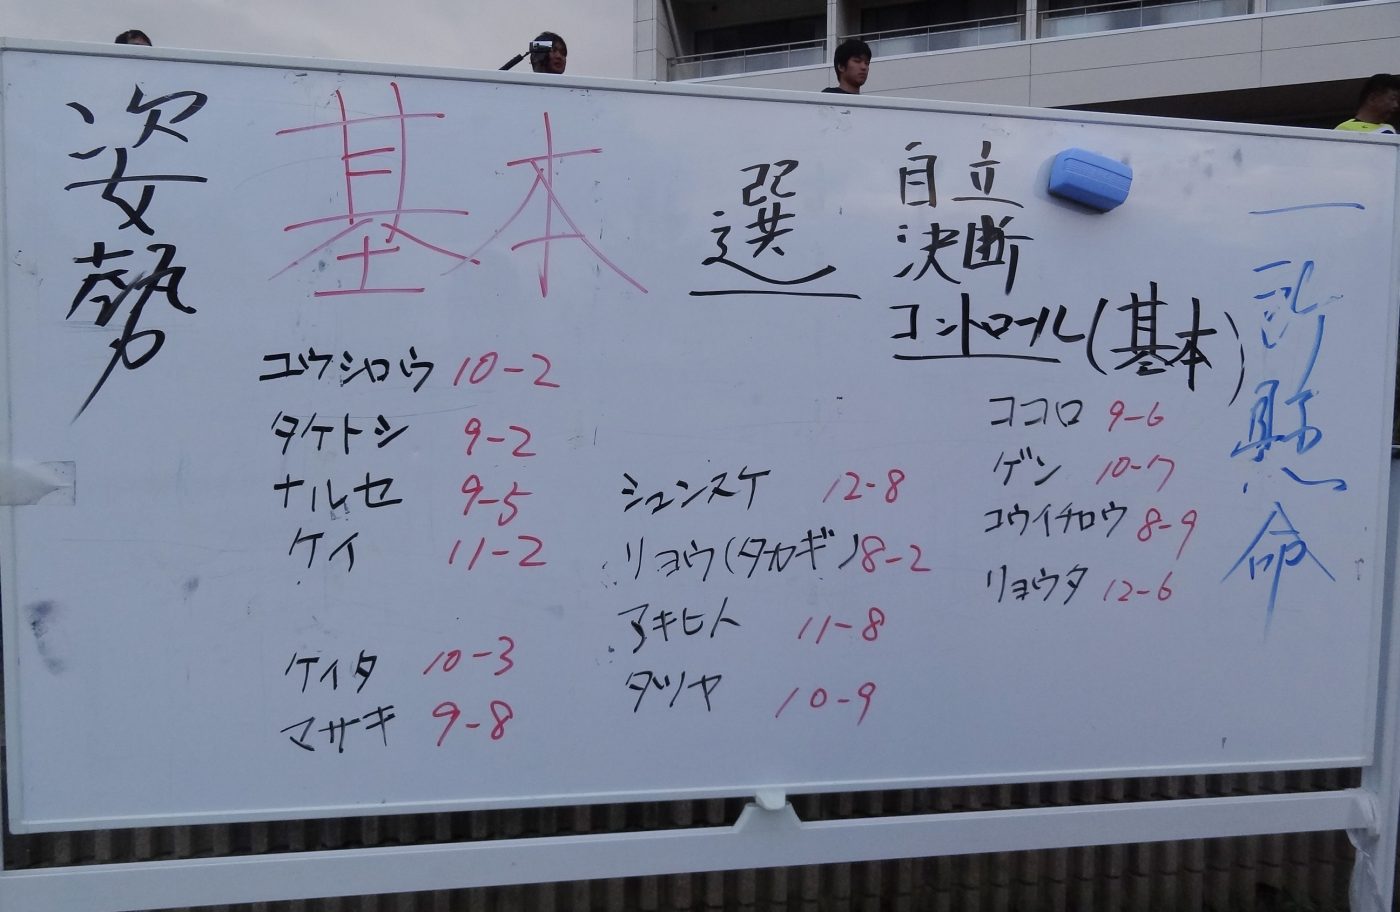 姿勢
基本
選
自立
決断
コントロール(基本)
一所懸命
ユウシロウ 10-2
タケトシ 9-2
ナルセ 9-5
ケイ 11-2
ケイタ 10-3
マサキ 9-8
シュンスケ 12-8
リョウ(タカギ) 8-2
アキヒト 11-8
タツヤ 10-9
ココロ 9-6
ゲン 10-7
コウイチロウ 8-9
リョウタ 12-6